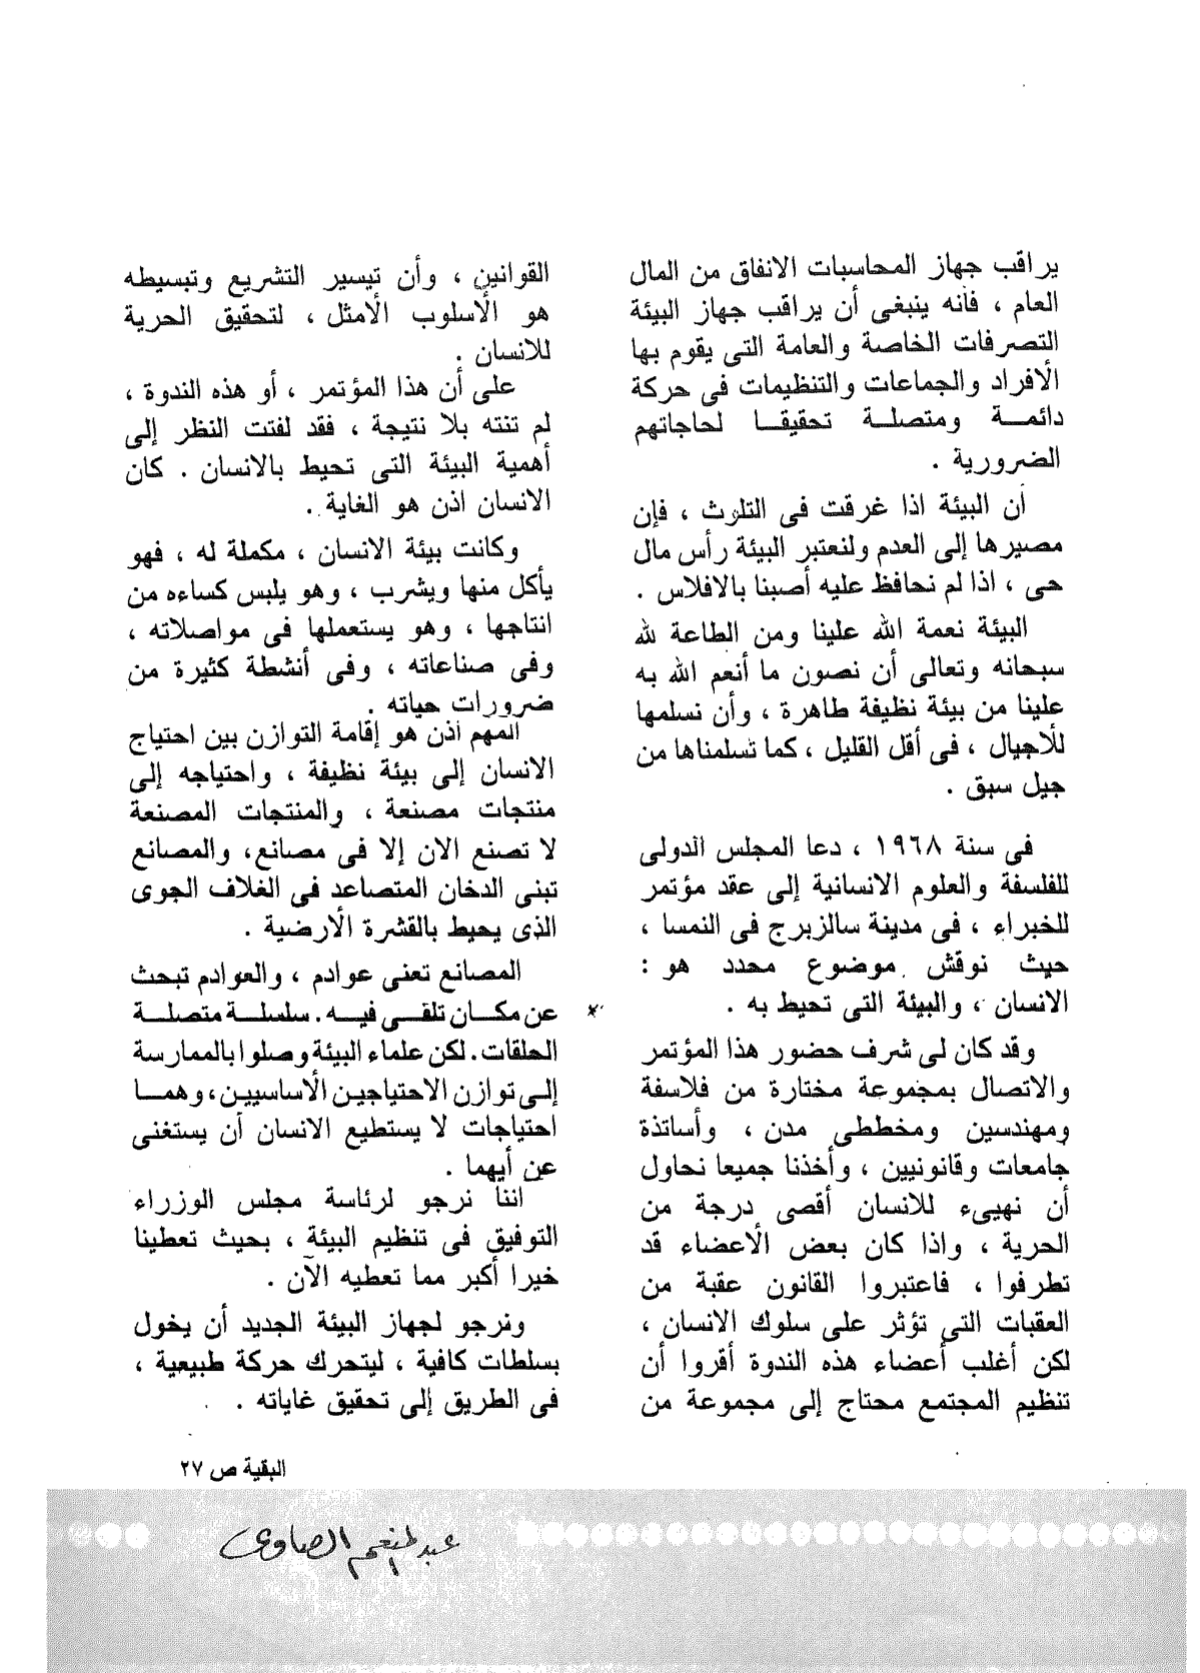 يراقب جهاز المحاسبات الانفاق من المال
العام ، فانه ينبغى أن يراقب جهاز البيئة
التصرفات الخاصة والعامة التى يقوم بها
الأفراد والجماعات والتنظيمات فى حركة
دائمـــة ومتصلـــة تحقيقـــا لحاجاتهم
الضرورية .
أن البيئة اذا غرقت فى التلوث ، فإن
مصيرها إلى العدم ولنعتبر البيئة رأس مال
حى ، اذا لم نحافظ عليه أصبنا بالافلاس .
البيئة نعمة الله علينا ومن الطاعة لله
سبحانه وتعالى أن نصون ما أنعم الله به
علينا من بيئة نظيفة طاهرة ، وأن نسلمها
للأجيال ، فى أقل القليل ، كما تسلمناها من
جيل سبق .
فى سنة ١٩٦٨ ، دعا المجلس الدولى
للفلسفة والعلوم الانسانية إلى عقد مؤتمر
للخبراء ، فى مدينة سالزبرج فى النمسا ،
حيث نوقش موضوع محدد هو :
الانسان ، والبيئة التى تحيط به .
وقد كان لى شرف حضور هذا المؤتمر
والاتصال بمجموعة مختارة من فلاسفة
ومهندسين ومخططى مدن ، وأساتذة
جامعات وقانونيين ، وأخذنا جميعا نحاول
أن نهيىء للانسان أقصى درجة من
الحرية ، واذا كان بعض الأعضاء قد
تطرفوا ، فاعتبروا القانون عقبة من
العقبات التى تؤثر على سلوك الانسان ،
لكن أغلب أعضاء هذه الندوة أقروا أن
تنظيم المجتمع محتاج إلى مجموعة من
القوانين ، وأن تيسير التشريع وتبسيطه
هو الأسلوب الأمثل ، لتحقيق الحرية
للانسان .
على أن هذا المؤتمر ، أو هذه الندوة ،
لم تنته بلا نتيجة ، فقد لفتت النظر إلى
أهمية البيئة التى تحيط بالانسان . كان
الانسان اذن هو الغاية .
وكانت بيئة الانسان ، مكملة له ، فهو
يأكل منها ويشرب ، وهو يلبس كساءه من
انتاجها ، وهو يستعملها فى مواصلاته ،
وفى صناعاته ، وفى أنشطة كثيرة من
ضرورات حياته .
المهم اذن هو إقامة التوازن بين احتياج
الانسان إلى بيئة نظيفة ، واحتياجه إلى
منتجات مصنعة ، والمنتجات المصنعة
لا تصنع الان إلا فى مصانع، والمصانع
تبنى الدخان المتصاعد فى الغلاف الجوى
الذى يحيط بالقشرة الأرضية .
المصانع تعنى عوادم ، والعوادم تبحث
عن مكـــان تلقـــى فيـــه . سلسلـــة متصلـــة
الحلقات. لكن علماء البيئة وصلوا بالممارسة
إلـى توازن الاحتياجين الأساسيين، وهمـــا
احتياجات لا يستطيع الانسان أن يستغنى
عن أيهما .
اننا نرجو لرئاسة مجلس الوزراء
التوفيق فى تنظيم البيئة ، بحيث تعطينا
خيرا أكبر مما تعطيه الآن .
ونرجو لجهاز البيئة الجديد أن يخول
بسلطات كافية ، ليتحرك حركة طبيعية ،
فى الطريق إلى تحقيق غاياته .
البقية ص ٢٧
عبد المنعم الصاوى